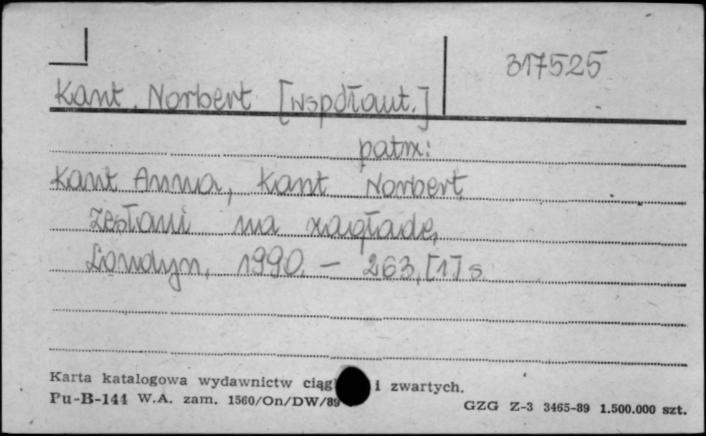 317525
Kant Norbert [współaut.]
patrz:
Kant Anna, Kant Norbert
Zesłani na zagładę,
Londyn, 1990. – 263, [1] s.
Karta katalogowa wydawnictw ciągł i zwartych.
Pu-B-144 W.A. zam. 1560/On/DW/89
GZG Z-3 3465-89 1.500.000 szt.